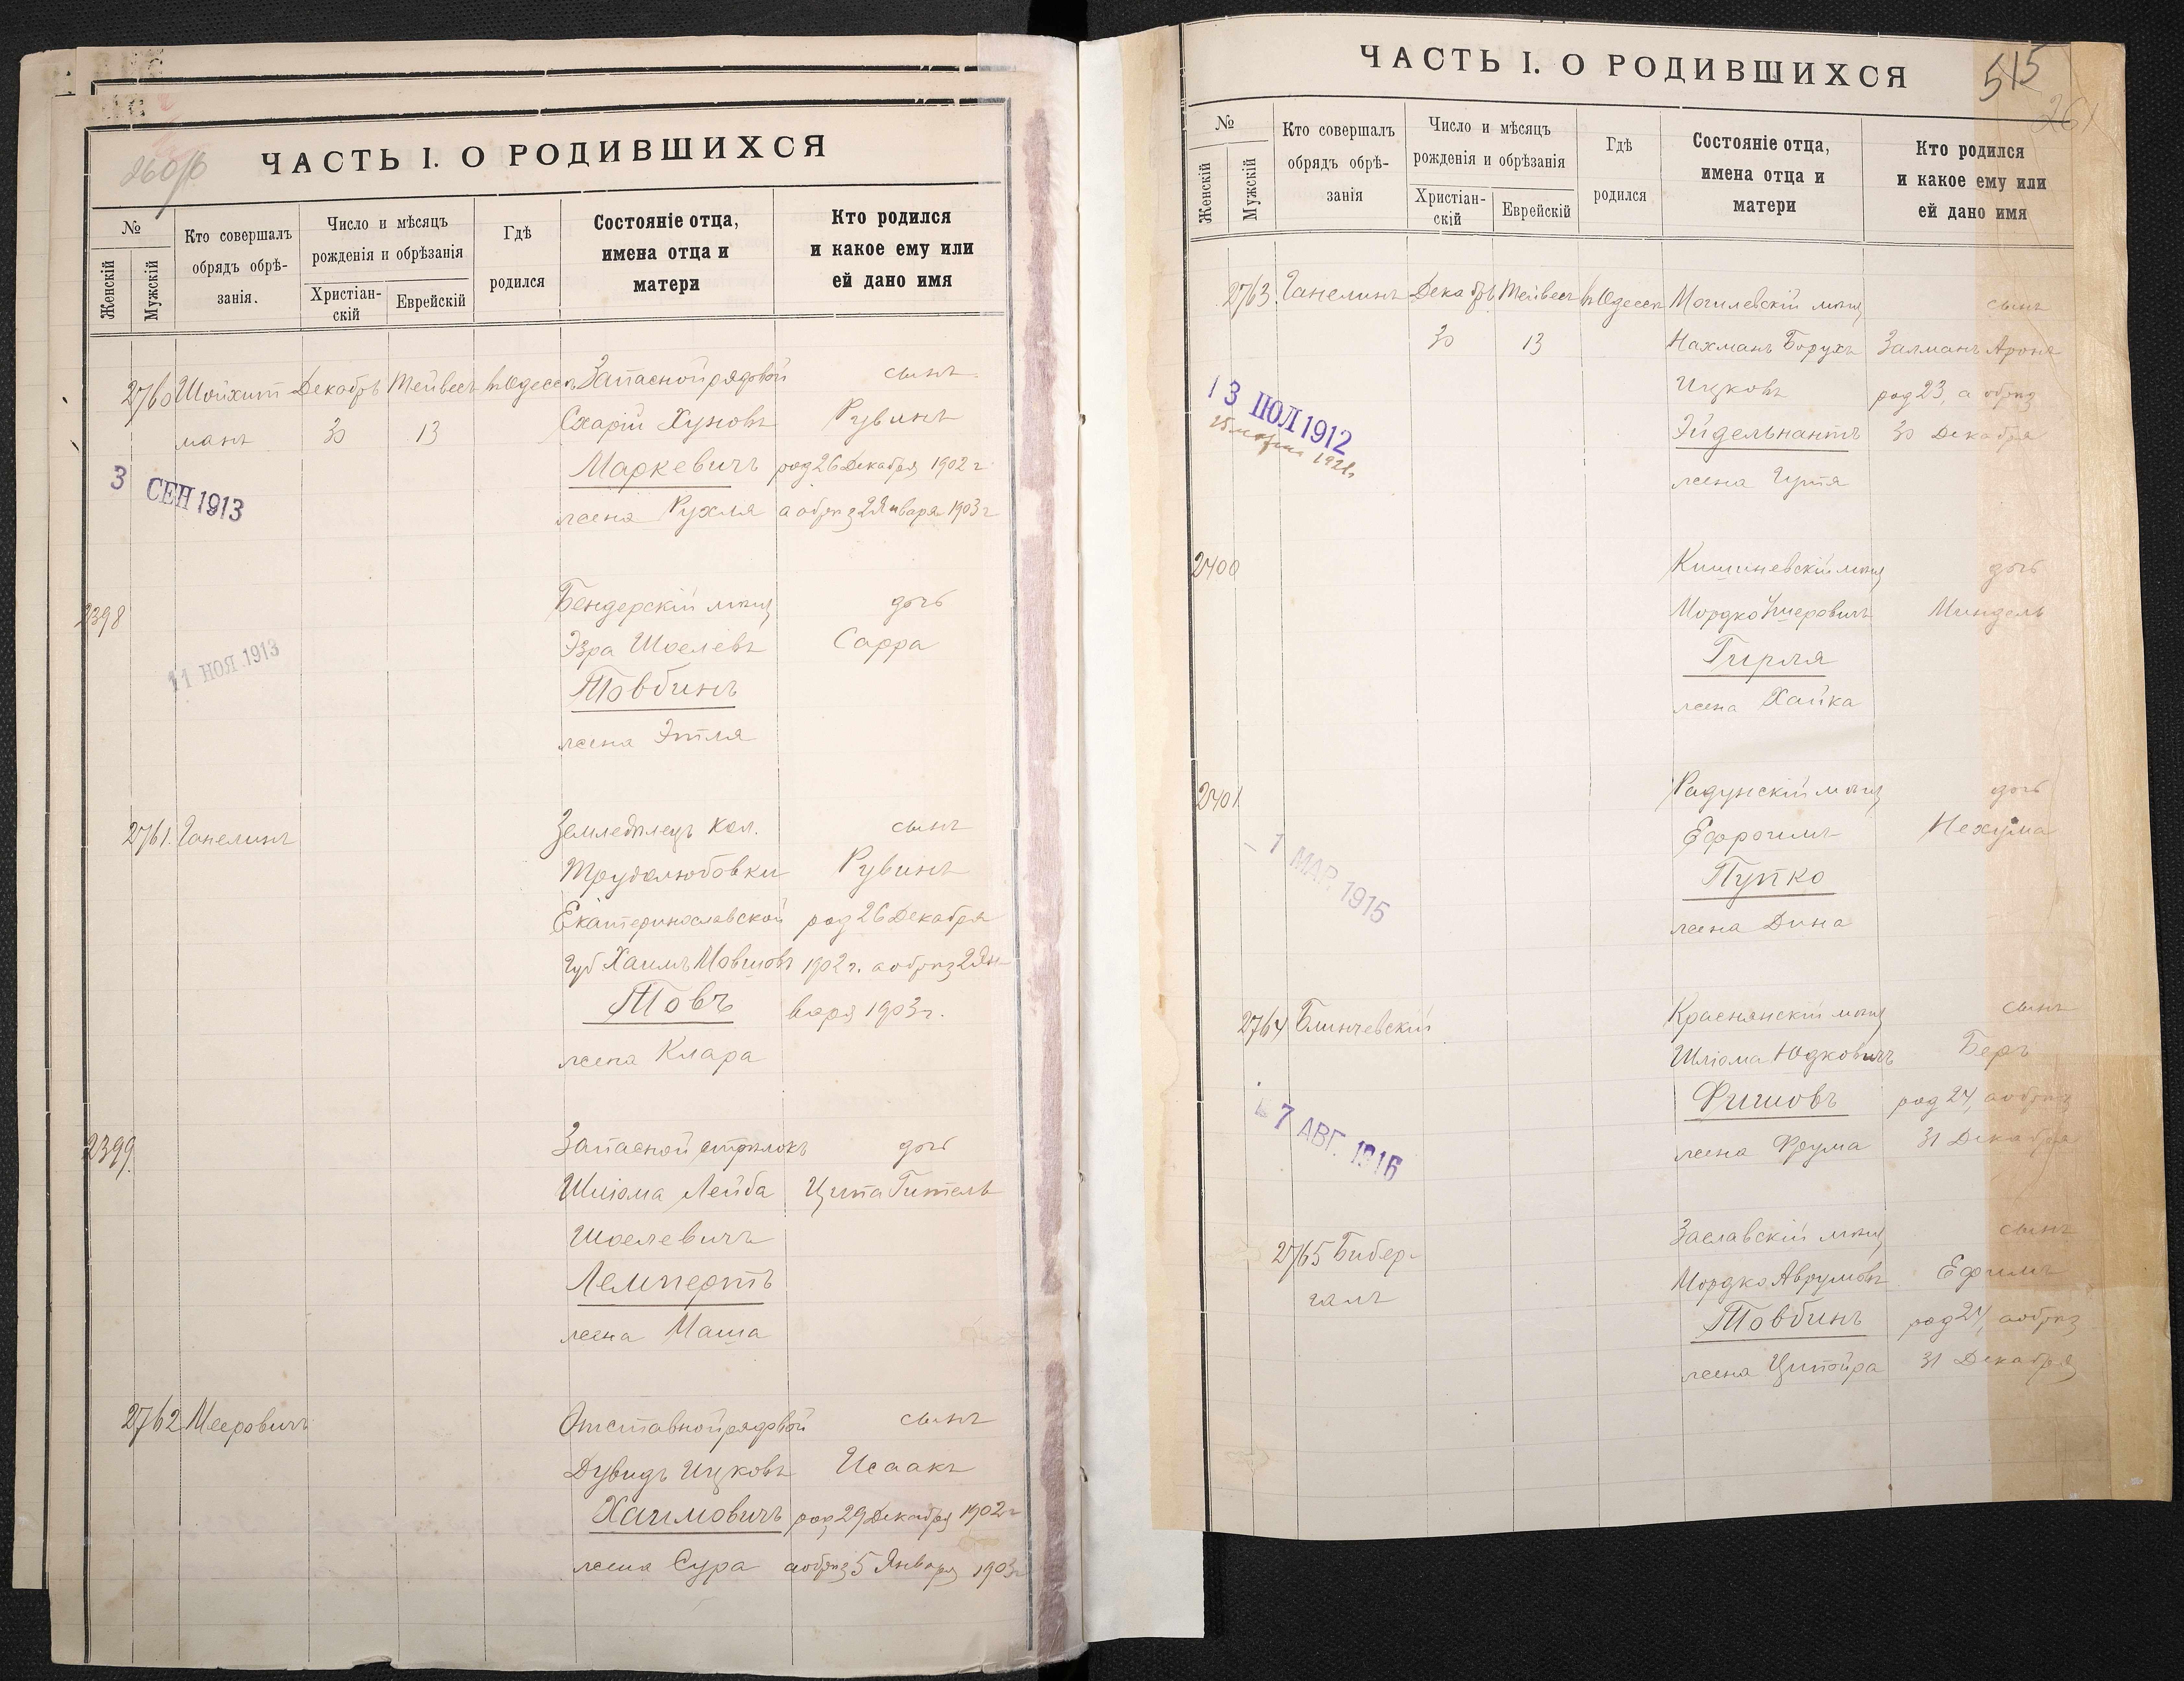 260/б
ЧАСТЬ I. О РОДИВШИХСЯ
№
Женскій
Мужскій
Кто совершалъ обрядъ обрѣ-занія.
Число и мѣсяцъ рожденія и обрѣзанія
Христіан-скій
Еврейскій
Гдѣ родился
Состояніе отца, имена отца и матери
Кто родился и какое ему или ей дано имя
2760 Шойхит Декабрь Тейвесъ въ Одессѣ Запасной рядовой сынъ
манъ 30 13 Схарій Хуновъ Рувинъ
Маркевичъ род 26 Декабря 1902 г
жена Рухля а обрѣз 2 Января 1903 г
3 СЕН 1913
2398 Бендерскій мѣщ дочь
Эзра Шоелевъ Сарра
Товбинъ
жена Этля
11 НОЯ 1913
2761. Ганелинъ Земледѣлецъ Кол. сынъ
Трудолюбовки Рувинъ
Екатеринославской род 26 Декабря
Губ Хаимъ Мовшовъ 1902 г. а обрѣз 2 Ян-
Товъ варя 1903 г.
жена Клара
2399. Запасной стрѣлокъ дочь
Шліома Лейба Ципа Гитель
Шоелевичъ
Лемпертъ
жена Маша
2762 Мееровичъ Отставной рядовой сынъ
Дувидъ Ицковъ Исаакъ
Хаимовичъ род 29 Декабря 1902 г
жена Сура а обрѣз 5 Января 1903 г
515
261
ЧАСТЬ I. О РОДИВШИХСЯ
№
Женскій
Мужскій
Кто совершалъ обрядъ обрѣ-занія
Число и мѣсяцъ рожденія и обрѣзанія
Христіан-скій
Еврейскій
Гдѣ родился
Состояніе отца, имена отца и матери
Кто родился и какое ему или ей дано имя
2763 Ганелинъ Декабрь Тейвесъ въ Одессѣ Могилевскій мѣщ сынъ
30 13 Нахманъ Борухъ Залманъ Аронъ
Ицковъ род 23, а обрѣз
Эйдельнантъ 30 Декабря
жена Гутя
13 ІЮЛ 1912
2400 Кишиневскій мѣщ дочь
Мордко Ушеровичъ Миндель
Гирля
жена Хайка
2401 Радунскій мѣщ дочь
Ефроимъ Нехума
Пупко
жена Дина
1 МАР. 1915
2764 Блинчевскій Краснянскій мѣщ сынъ
Шліома Юдковичъ Беръ
Фишовъ род 24, а обрѣз
жена Фрума 31 Декабря
7 АВГ. 1916
2765 Бибер- Заславскій мѣщ сынъ
галъ Мордко Аврумовъ Ефимъ
Товбинъ род 24, а обрѣз
жена Ципойра 31 Декабря